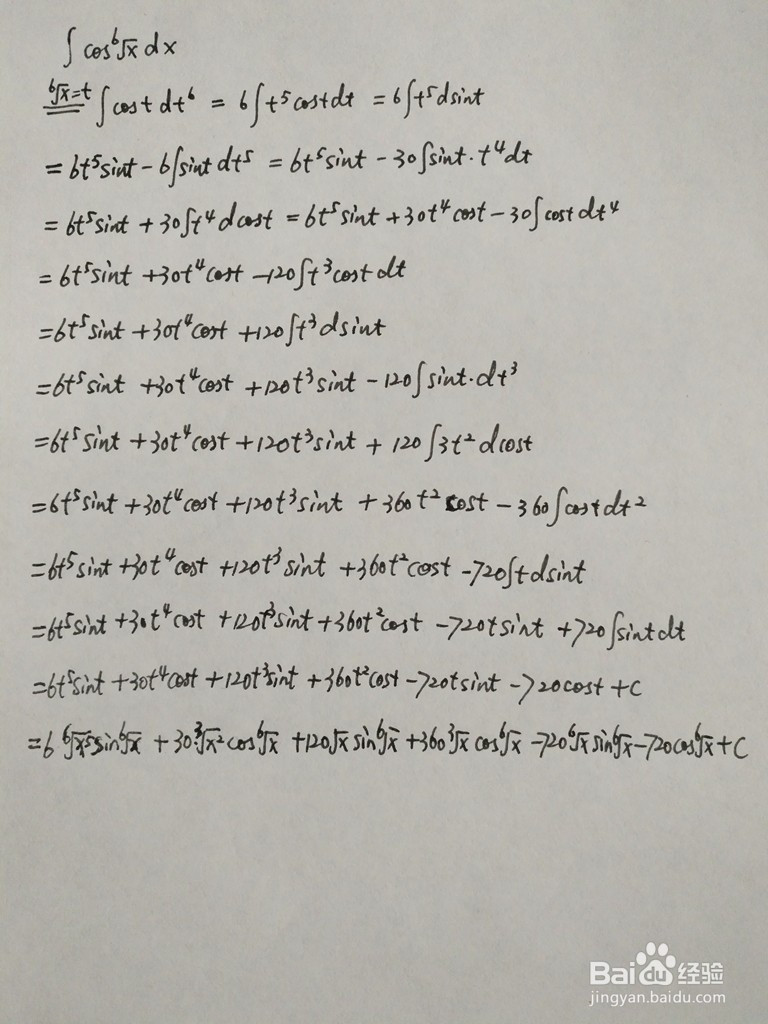 ∫ cos⁶√x dx
⁶√x=t ∫ cost dt⁶ = 6∫t⁵costdt = 6∫t⁵dsint
= 6t⁵sint - 6∫sint dt⁵ = 6t⁵sint - 30∫sint·t⁴dt
= 6t⁵sint + 30∫t⁴dcost = 6t⁵sint + 30t⁴cost - 30∫costdt⁴
= 6t⁵sint + 30t⁴cost - 120∫t³costdt
= 6t⁵sint + 30t⁴cost + 120∫t³dsint
= 6t⁵sint + 30t⁴cost + 120t³sint - 120∫sint·dt³
= 6t⁵sint + 30t⁴cost + 120t³sint + 120∫3t²dcost
= 6t⁵sint + 30t⁴cost + 120t³sint + 360t²cost - 360∫costdt²
= 6t⁵sint + 30t⁴cost + 120t³sint + 360t²cost - 720∫tdsint
= 6t⁵sint + 30t⁴cost + 120t³sint + 360t²cost - 720tsint + 720∫sintdt
= 6t⁵sint + 30t⁴cost + 120t³sint + 360t²cost - 720tsint - 720cost + C
= 6⁶√x⁵sin⁶√x + 30³√x²cos⁶√x + 120√x sin⁶√x + 360³√x cos⁶√x - 720⁶√x sin⁶√x - 720cos⁶√x + C
Baidu经验
jingyan.baidu.com